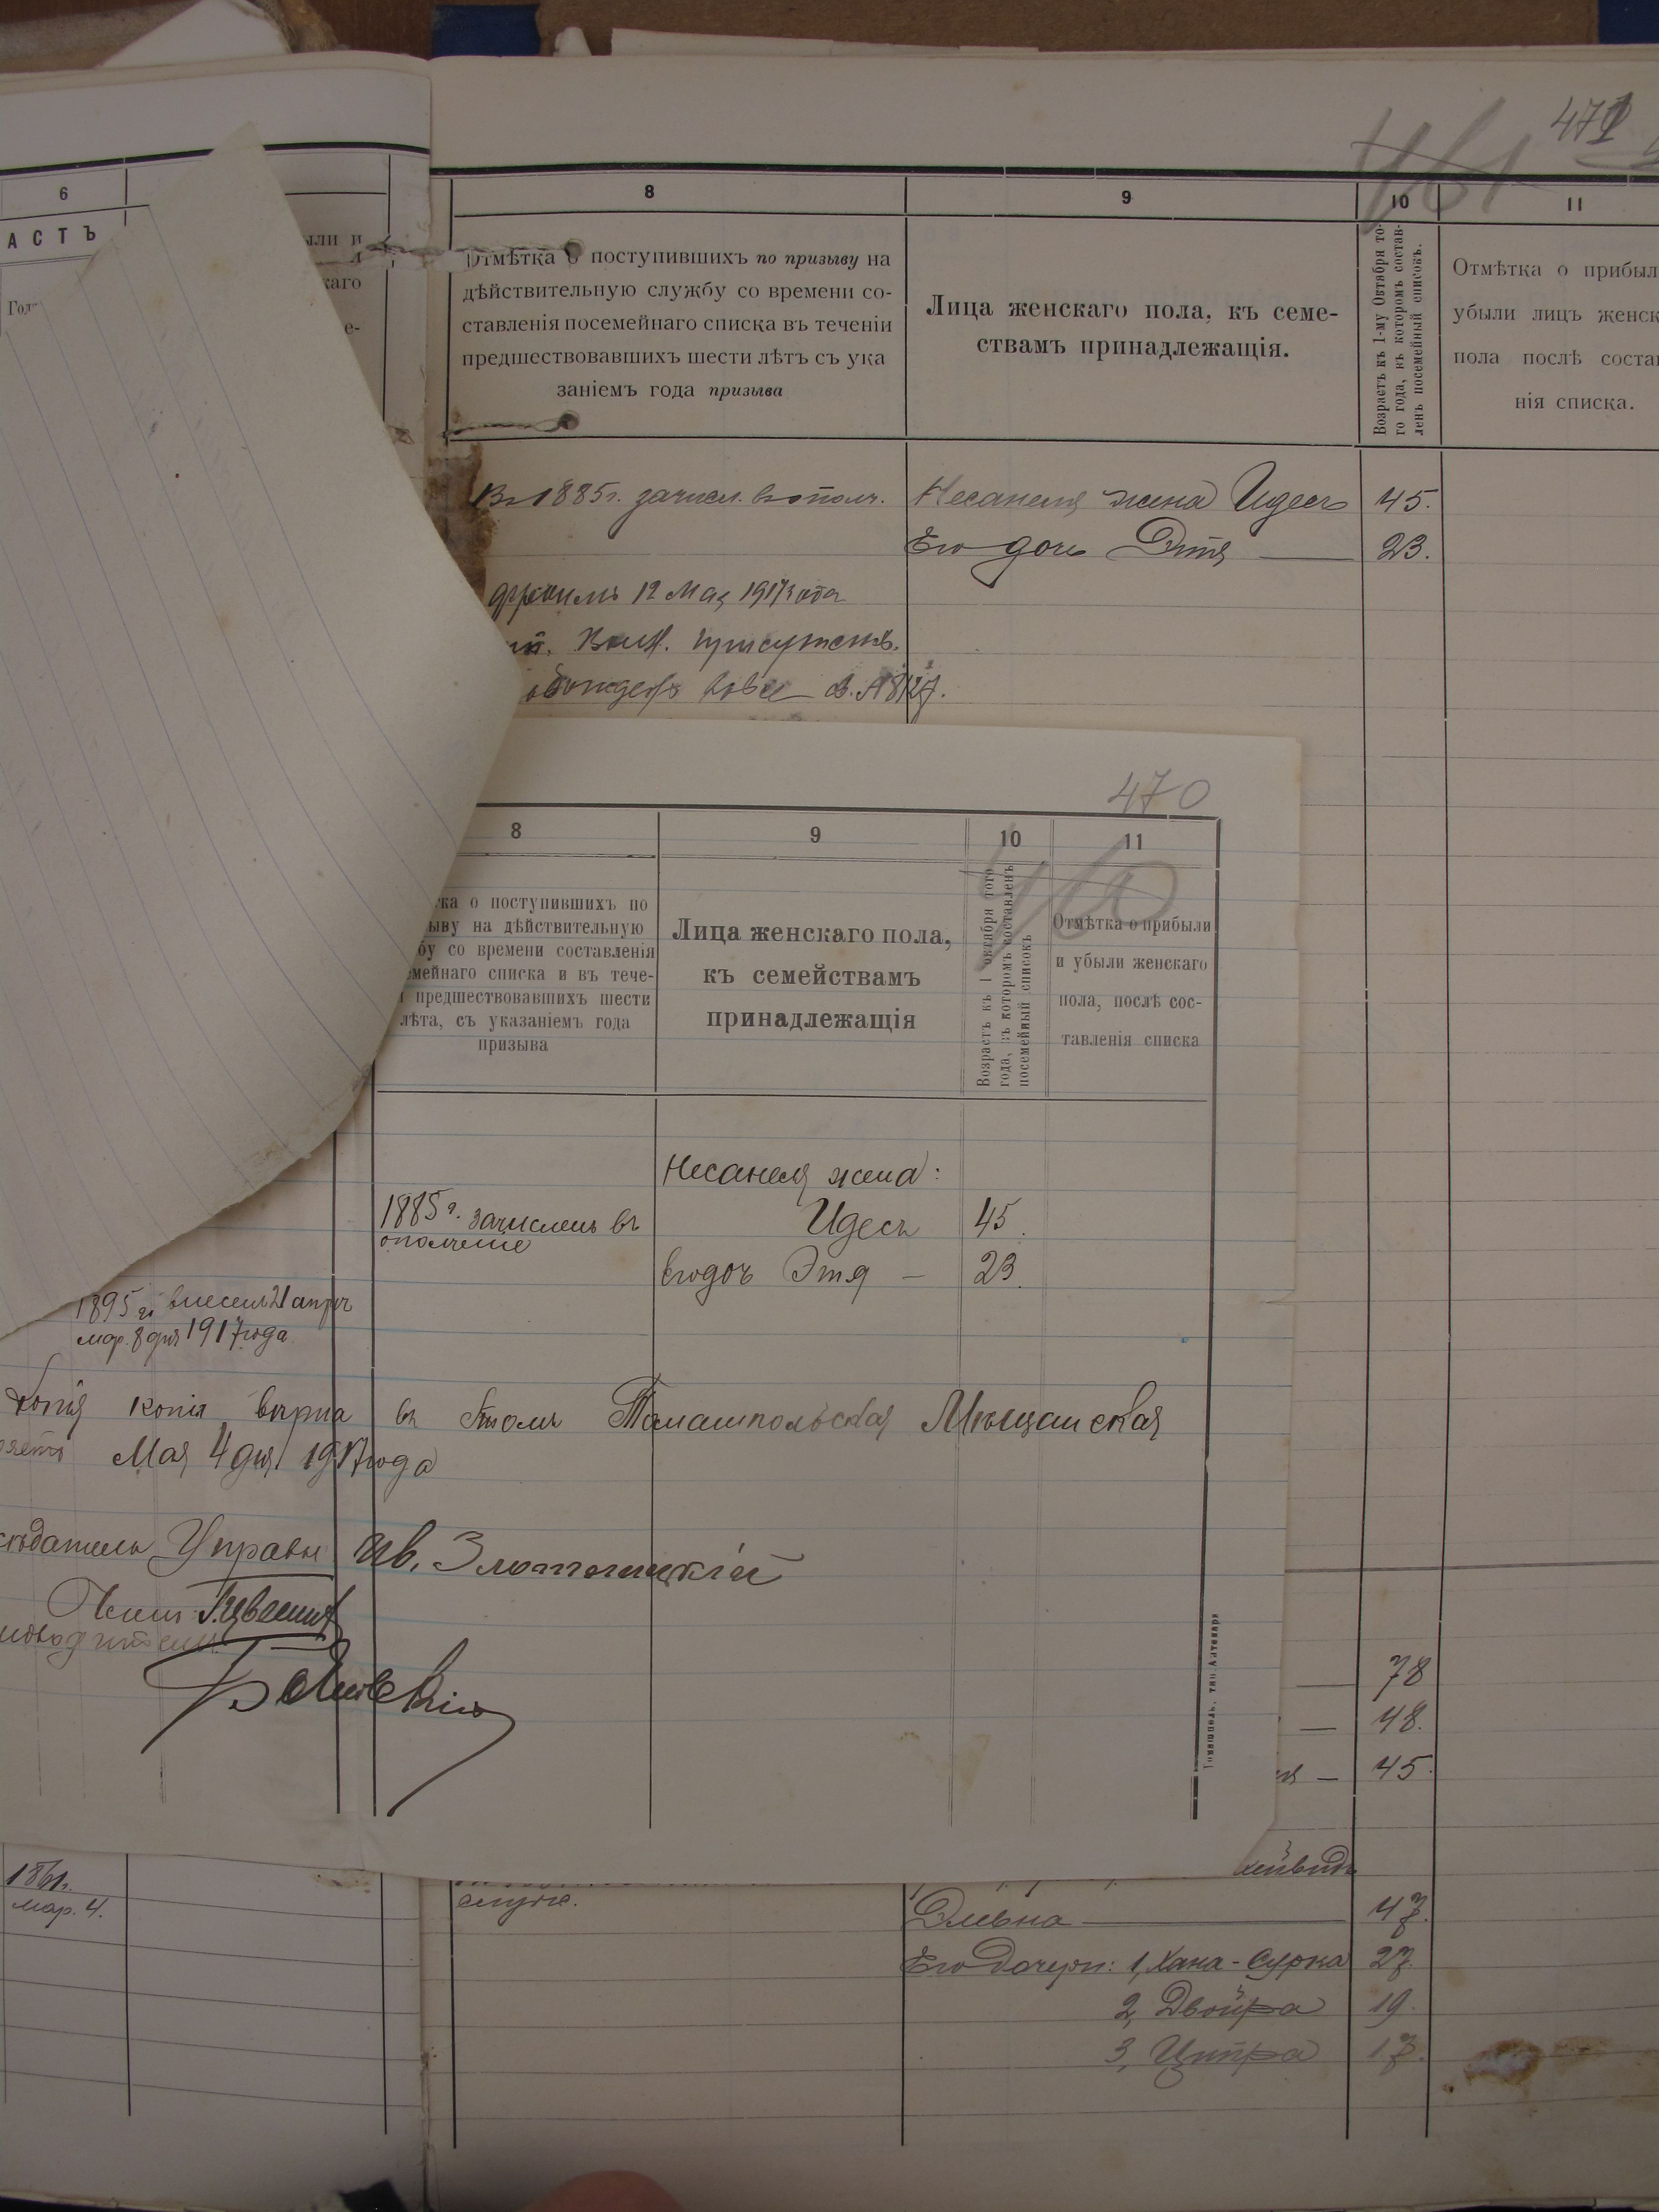 471
461
6
8
9
10
11
АСТЪ
ыли и
каго
е-
Отмѣтка о поступившихъ по призыву на
дѣйствительную службу со времени со-
ставленія посемейнаго списка въ теченіи
предшествовавшихъ шести лѣтъ съ ука
заніемъ года призыва
Лица женскаго пола, къ семе-
ствамъ принадлежащія.
Возрастъ къ 1-му Октября то-
го года, въ которомъ состав-
ленъ посемейный списокъ.
Отмѣтка о прибыл
убыли лицъ женск
пола послѣ соста
нія списка.
Въ 1885г. зачисл. въ ополч.
Несанеля жена Идесъ 45.
Его дочь Этя — 23.
12 Мая 1917 года
присутств.
470
460
8
9
10
11
ка о поступившихъ по
ыву на дѣйствительную
бу со времени составленія
мейнаго списка и въ тече-
предшествовавшихъ шести
лѣта, съ указаніемъ года
призыва
Лица женскаго пола,
къ семействамъ
принадлежащія
Возрастъ къ 1 октября того
года, въ которомъ составленъ
посемейный списокъ
Отмѣтка о прибыли
и убыли женскаго
пола, послѣ сос-
тавленія списка
Несанеля жена:
1885 г. зачисленъ въ
ополченіе
Идесъ 45.
Его дочь Этя — 23.
1895 г.
мар. 8 дня 1917 года
копія вѣрна въ томъ Томашпольская Мѣщанская
Мая 4 дня 1917 года
сѣдатель Управы Ив.
Томашполь, тип. Алтонара
— 78
— 48.
— 45.
1861г.
мар. 4.
Элевна — 47.
Его дочери: 1, Хана-Сурка 27.
2, Двойра 19.
3, Ципра 17.